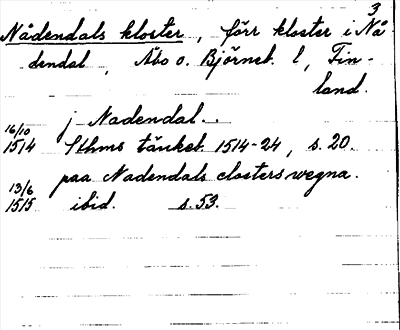 3
Nådendals kloster, förr kloster i Nå-
dendal, Åbo o. Björneb. l, Fin-
land.
j Nadendal..
16/10
1514 Sthms tänkeb. 1514-24, s. 20.
paa Nadendals closters wegna.
13/6
1515 ibid. s. 53.